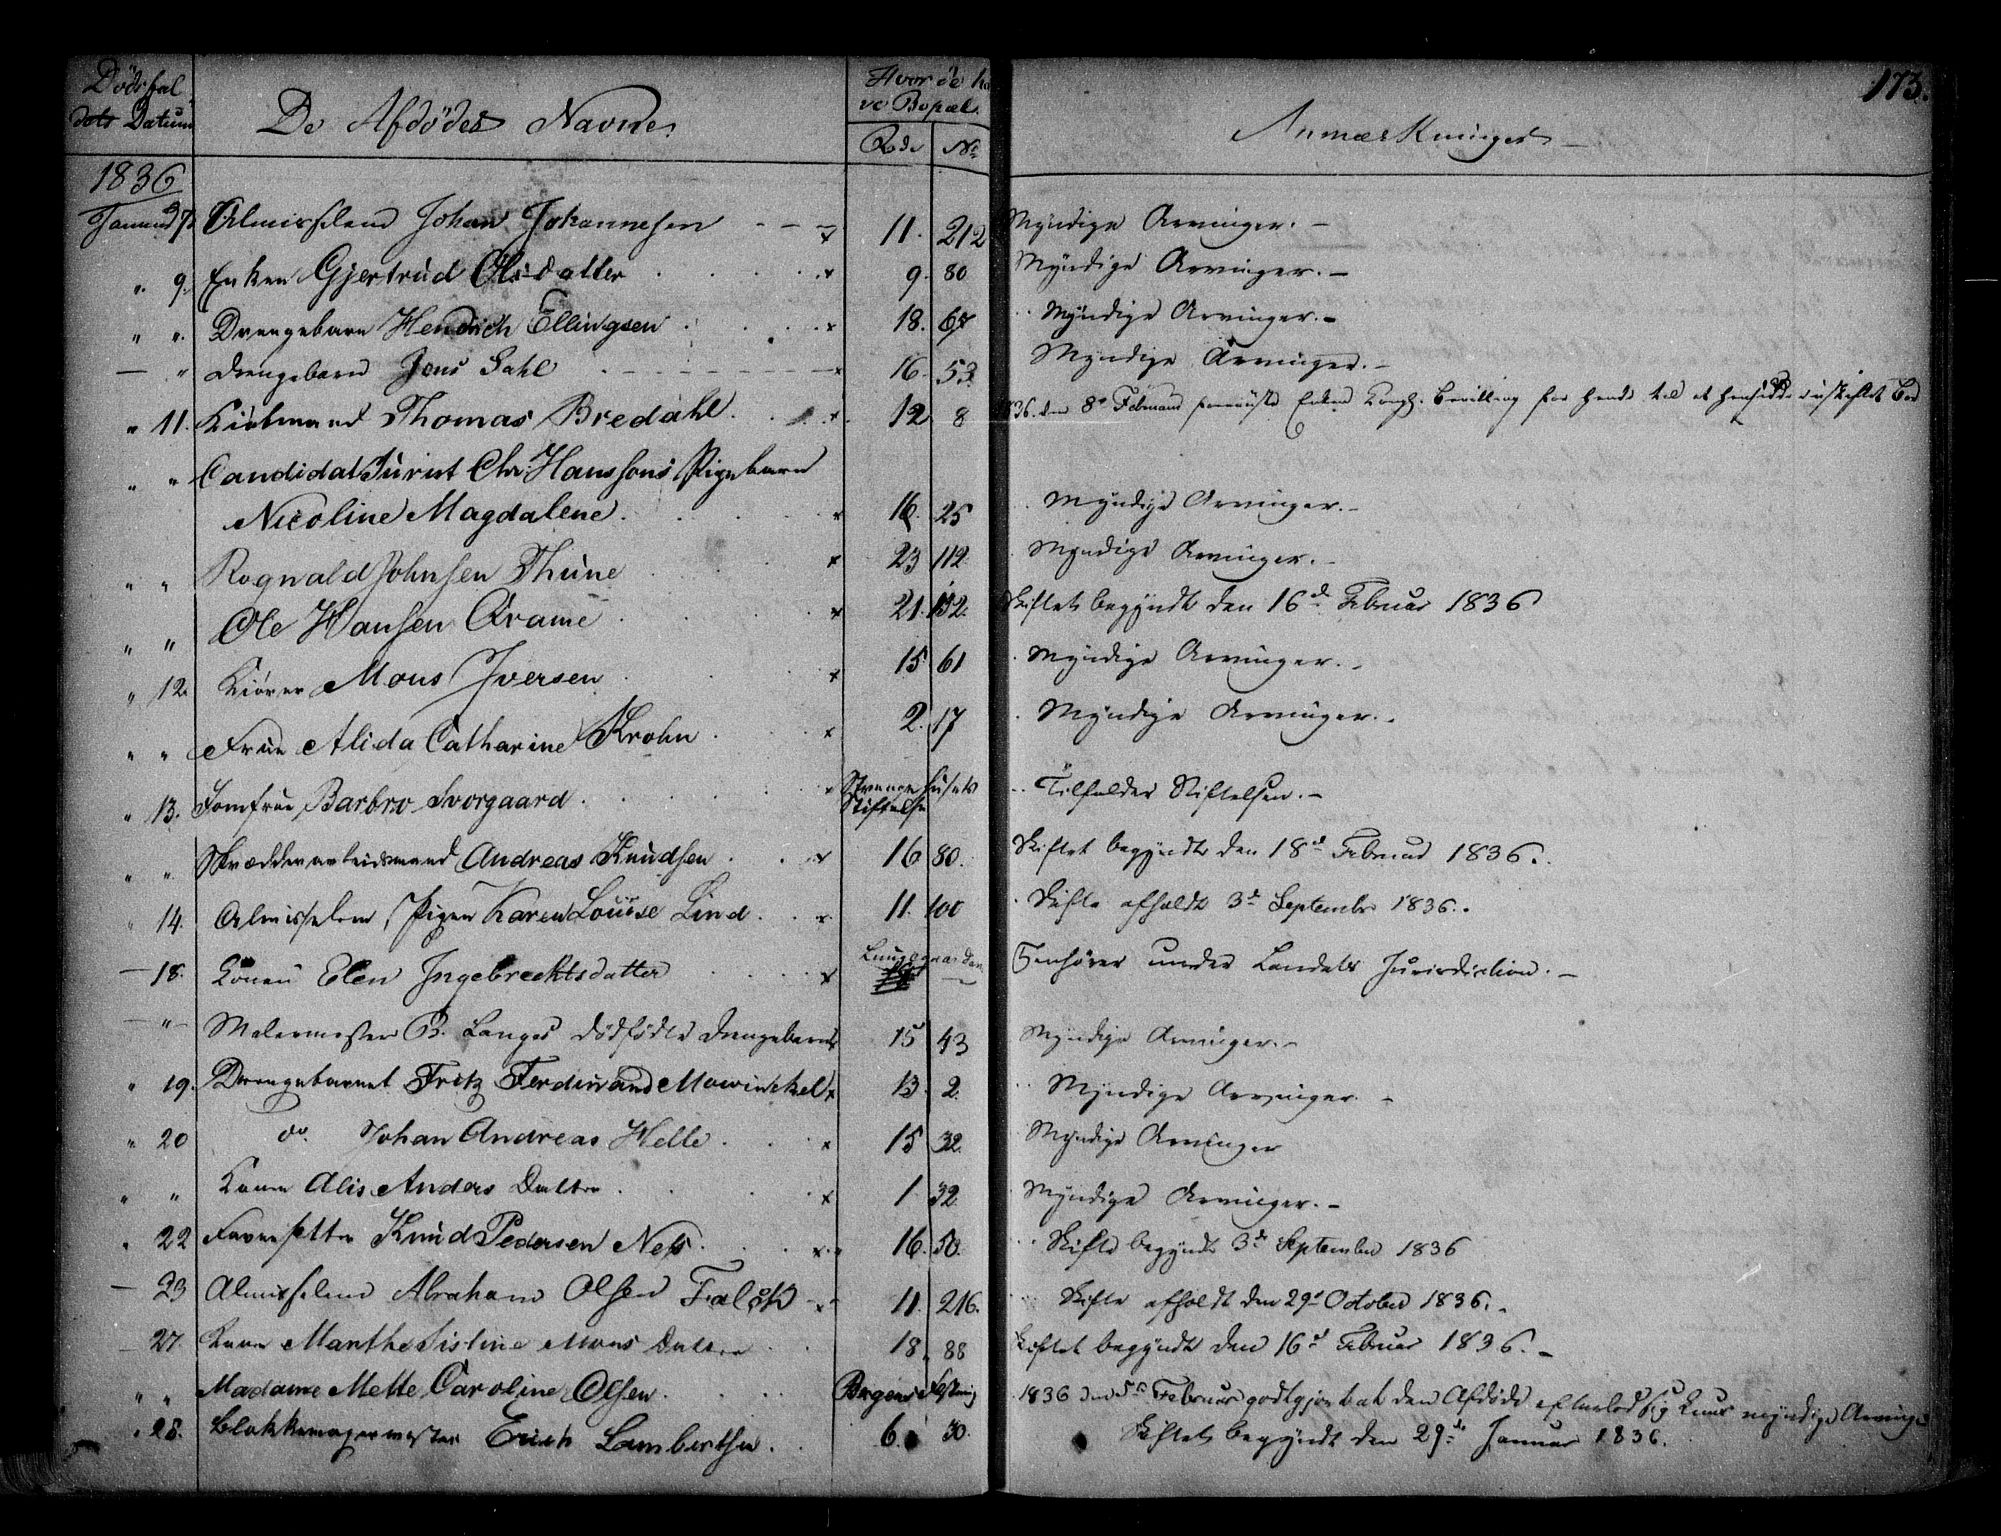 173.
Dödsfal De Afdödes Navne. Hvor de ha
dets Datum ve Bopæl. Anmærkninger
Rode No
1836
Januar 7 Almisselem Johan Johannesen 11. 212 Myndige Arvinger.
" 9. Enken Gjertrud Olsdatter 9. 80 Myndige Arvinger.
" " Drengebarn Hendrich Ellingsen 18. 67 Myndige Arvinger.
— " Drengebarn Jens Dahl 16. 53 Myndige Arvinger.
" 11. Kiøbmand Thomas Bredahl. 12 8 1836. den 8de Februar foreviiste Enken Kongl. Bevilling for hende til at hensidde i uskiftet Boe
" " Candidat Jurist Chr. Hanssons Pigebarn
Nicoline Magdalene. 16. 25 Myndige Arvinger.
" " Rognald Johnsen Thune 23 112 Myndige Arvinger.
" " Ole Hansen Qvame 21. 152. Skiftet begyndt den 16d Februar 1836
" 12. Kiører Mons Iversen 15 61 Myndige Arvinger.
" " Frue Alida Catharine Krohn 2. 17 Myndige Arvinger.
" 13. Jomfrue Barbro Svorgaard. Stranges huusets Stiftelse Tilfalder Stiftelsen.
" " Skrædderarbeidsmand Andreas Knudsen 16 80. Skiftet begyndt den 18d Februar 1836.
" 14. Almisselem, Pigen Karen Louise Lind. 11. 100 Skifte afholdt 3d September 1836.
— 18. Konen Elen Ingebrechtsdatter Lungegaarden Henhører under Landets Jurisdiction.
— " Malermester B. Langes dödfödte Drengebarn 15 43 Myndige Arvinger.
" 19. Drengebarnet Fritz Ferdinand Mowinckel 13. 2. Myndige Arvinger.
" 20 do. Johan Andreas Helle. 15 32. Myndige Arvinger
" " Kone Alis Anders Datter 1 32 Myndige Arvinger.
" 22 Farversvend Knud Pedersen Ness. 16. 50. Skifte begyndt 3d September 1836
— 23 Almisselem Abraham Olsen Falck 11. 216. Skifte afholdt den 29d October 1836.
— 27. Kone Marthe Sistine Mons Datter 18. 88 Skiftet begyndt den 16d Februar 1836.
" " Madame Mette Caroline Olsen. Bergens Festning 1836 den 5te Februar godtgjort at den Afdøde efterlod sig kuns myndige Arvinger
" 28. Blokkemagermester Erich Lambertsen. 6. 30. Skiftet begyndt den 29de Januar 1836.